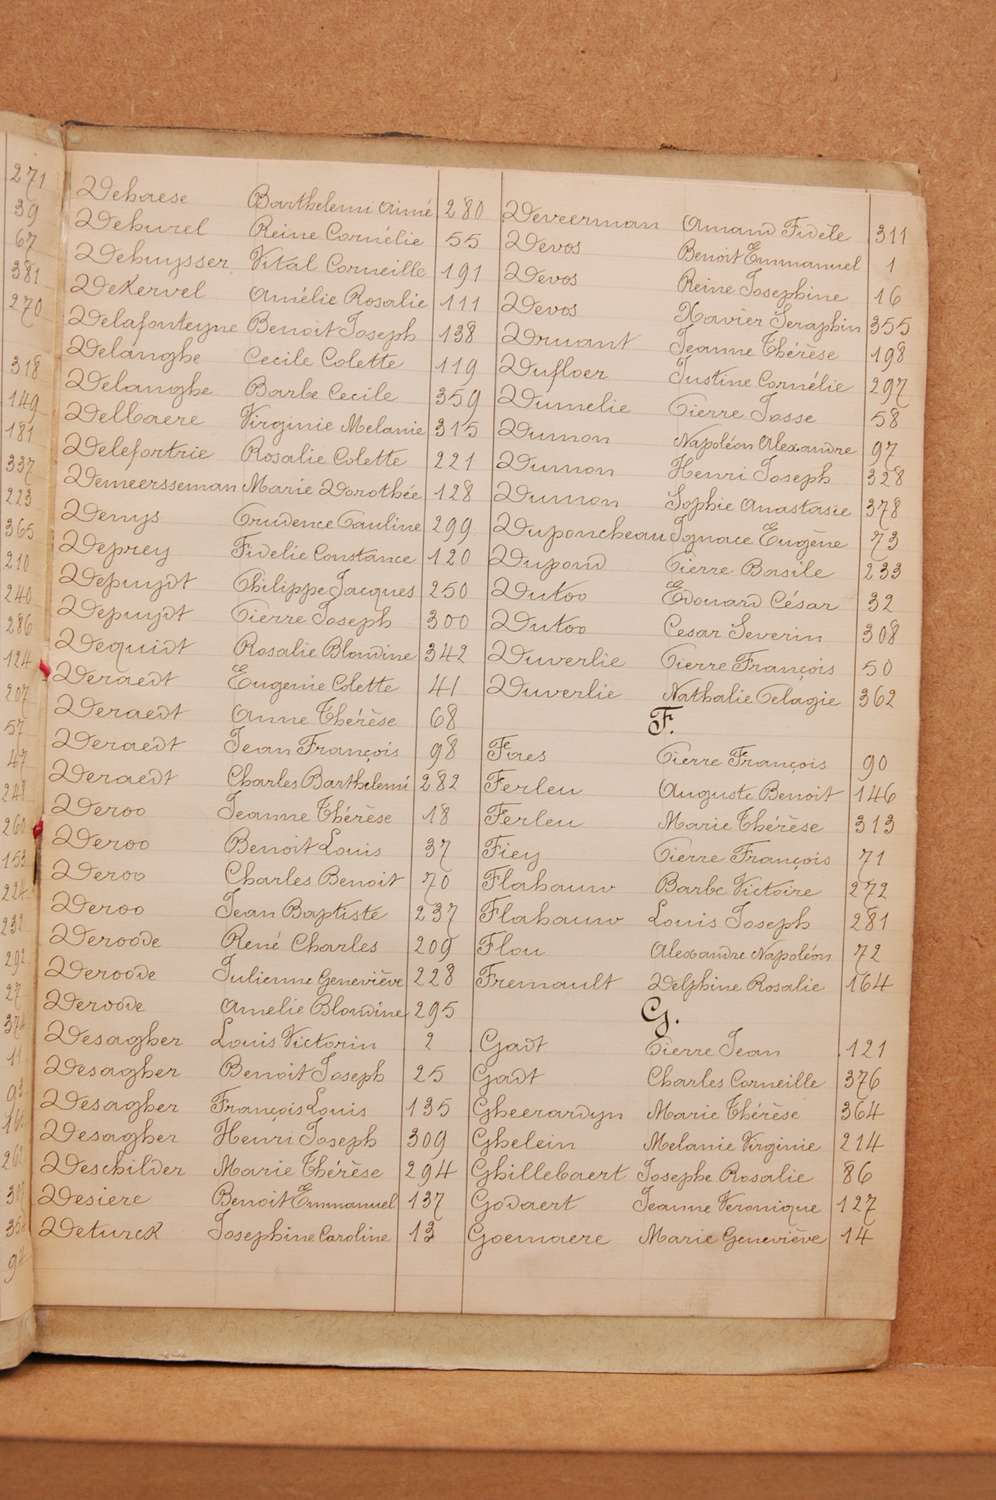 271
39
67
381
270
318
149
181
337
223
365
210
240
286
124
207
57
47
248
260
153
224
232
292
27
374
11
93
Dehaese Barthelemi Aimé 280
Dehurel Reine Cornélie 55
Dehuysser Vital Corneille 191
DeKervel Amélie Rosalie 111
Delafonteyne Benoit Joseph 138
Delanghe Cecile Colette 119
Delanghe Barbe Cecile 359
Delbaere Virginie Melanie 315
Delefortrie Rosalie Colette 221
Demeersseman Marie Dorothée 128
Denys Prudence Pauline 299
Deprey Fidelie Constance 120
Depuydt Philippe Jacques 250
Depuydt Pierre Joseph 300
Dequidt Rosalie Blondine 342
Deraedt Eugenie Colette 41
Deraedt Anne Thérèse 68
Deraedt Jean François 98
Deraedt Charles Barthelemi 282
Deroo Jeanne Thérèse 18
Deroo Benoit Louis 37
Deroo Charles Benoit 70
Deroo Jean Baptiste 237
Deroode René Charles 209
Deroode Julienne Geneviève 228
Deroode Amelie Blondine 295
Desagher Louis Victorin 2
Desagher Benoit Joseph 25
Desagher François Louis 135
Desagher Henri Joseph 309
Deschilder Marie Thérèse 294
Desiere Benoit Emmanuel 137
Deturck Josephine Caroline 13
Deveerman Amand Fidèle 311
Devos Benoit Emmanuel 1
Devos Reine Josephine 16
Devos Xavier Seraphin 355
Druant Jeanne Thérèse 198
Dufloer Justine Cornélie 297
Dumelie Pierre Josse 58
Dumon Napoléon Alexandre 97
Dumon Henri Joseph 328
Dumon Sophie Anastasie 378
Duponcheau Ignace Eugène 73
Dupond Pierre Basile 233
Dutoo Edouard César 32
Dutoo Cesar Severin 308
Duverlie Pierre François 50
Duverlie Nathalie Pelagie 362
F.
Faes Pierre François 90
Ferleu Auguste Benoit 146
Ferleu Marie Thérèse 313
Fiey Pierre François 71
Flahauw Barbe Victoire 272
Flahauw Louis Joseph 281
Flou Alexandre Napoléon 72
Fremault Delphine Rosalie 164
G.
Gadt Pierre Jean 121
Gadt Charles Corneille 376
Gheerardyn Marie Thérèse 364
Ghelein Melanie Virginie 214
Ghillebaert Josephe Rosalie 86
Godaert Jeanne Veronique 127
Goemaere Marie Geneviève 14